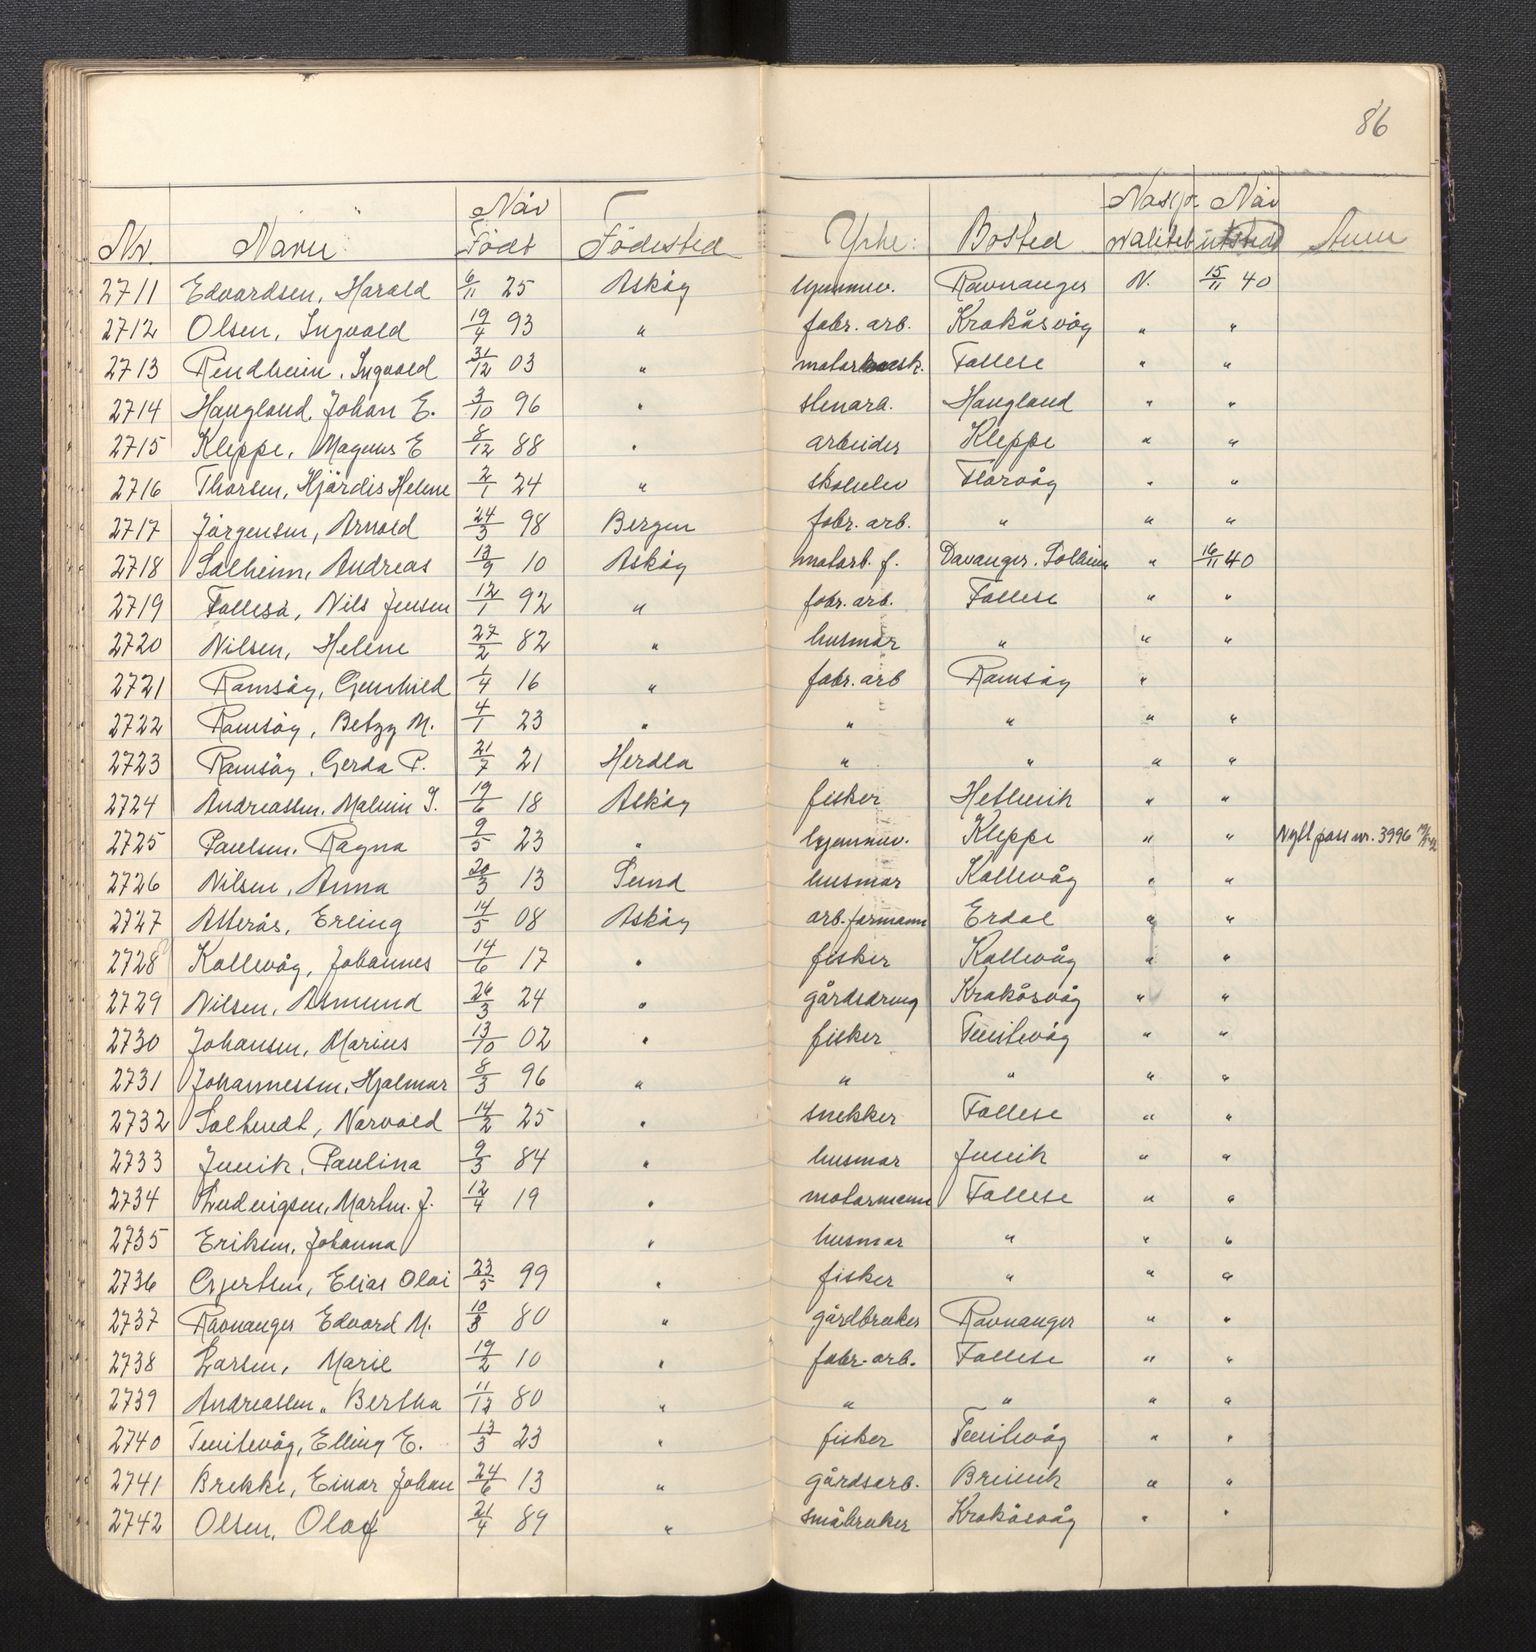 86
Nr. Navn Når Födt Födested Yrke: Bosted Nasjonalitet Når utsted Anm
2711 Edvardsen, Harald 6/11 25 Askøy hjemmev. Ravnanger N. 15/11 40
2712 Olsen, Ingvald 19/4 93 " fabr. arb. Krokåsvåg " "
2713 Rindheim, Ingvald 31/12 03 " motormask. Follese " "
2714 Haugland, Johan E. 3/10 96 " stenarb. Haugland " "
2715 Kleppe, Magnus E 8/12 88 " arbeider Kleppe " "
2716 Thorsen, Hjördis Helene 2/1 24 " skoleelev Florvåg " "
2717 Jörgensen, Arnold 24/3 98 Bergen fabr. arb. " " "
2718 Solheim, Andreas 13/9 10 Askøy motorb. f. Davanger. Solheim " 16/11 40
2719 Follesö, Nils Jensen 12/1 92 " fabr. arb. Follese " "
2720 Nilsen, Helene 27/2 82 " husmor " " "
2721 Ramsöy, Gunhild 1/4 16 " fabr. arb Ramsöy "
2722 Ramsöy, Betzy M. 4/1 23 " " " " "
2723 Ramsöy, Gerda P. 21/7 21 Herdla " " " "
2724 Andreassen, Malvin J. 19/6 18 Askøy fisker Hetlevik " "
2725 Paulsen, Ragna 9/5 23 " hjemmev. Kleppe " " Nytt pass nr. 3996
2726 Nilsen, Anna 20/3 13 Sund husmor Kollevåg " "
2727 Atterås, Erling 14/5 08 Askøy arb. formann Erdal " "
2728 Kollevåg, Johannes 14/6 17 " fisker Kollevåg " "
2729 Nilsen, Asmund 26/3 24 " gårdsdreng Krokåsvåg " "
2730 Johansen, Marius 13/10 02 " fisker Tveitevåg " "
2731 Johannessen, Hjalmar 8/3 96 " " " " "
2732 Soltvedt, Norvald 14/2 25 " snekker Follese " "
2733 Juvik, Paulina 9/3 84 " husmor Juvik " "
2734 Ludvigsen, Martin. J. 12/4 19 " motormann Follese " "
2735 Eriksen, Johanna " husmor " " "
2736 Gjertsen, Elias Olai 23/5 99 " fisker " " "
2737 Ravnanger Edvard M. 10/3 80 " gårdbruker Ravnanger " "
2738 Larsen, Marie 19/2 10 " fabr. arb. Follese " "
2739 Andreassen, Bertha 11/12 80 " " " " "
2740 Tveitevåg, Elling E. 13/3 23 " fisker Tveitevåg " "
2741 Brekke, Einar Johan 24/6 13 " gårdsarb. Breivik " "
2742 Olsen, Olaf 21/4 89 " småbruker Krokåsvåg " "